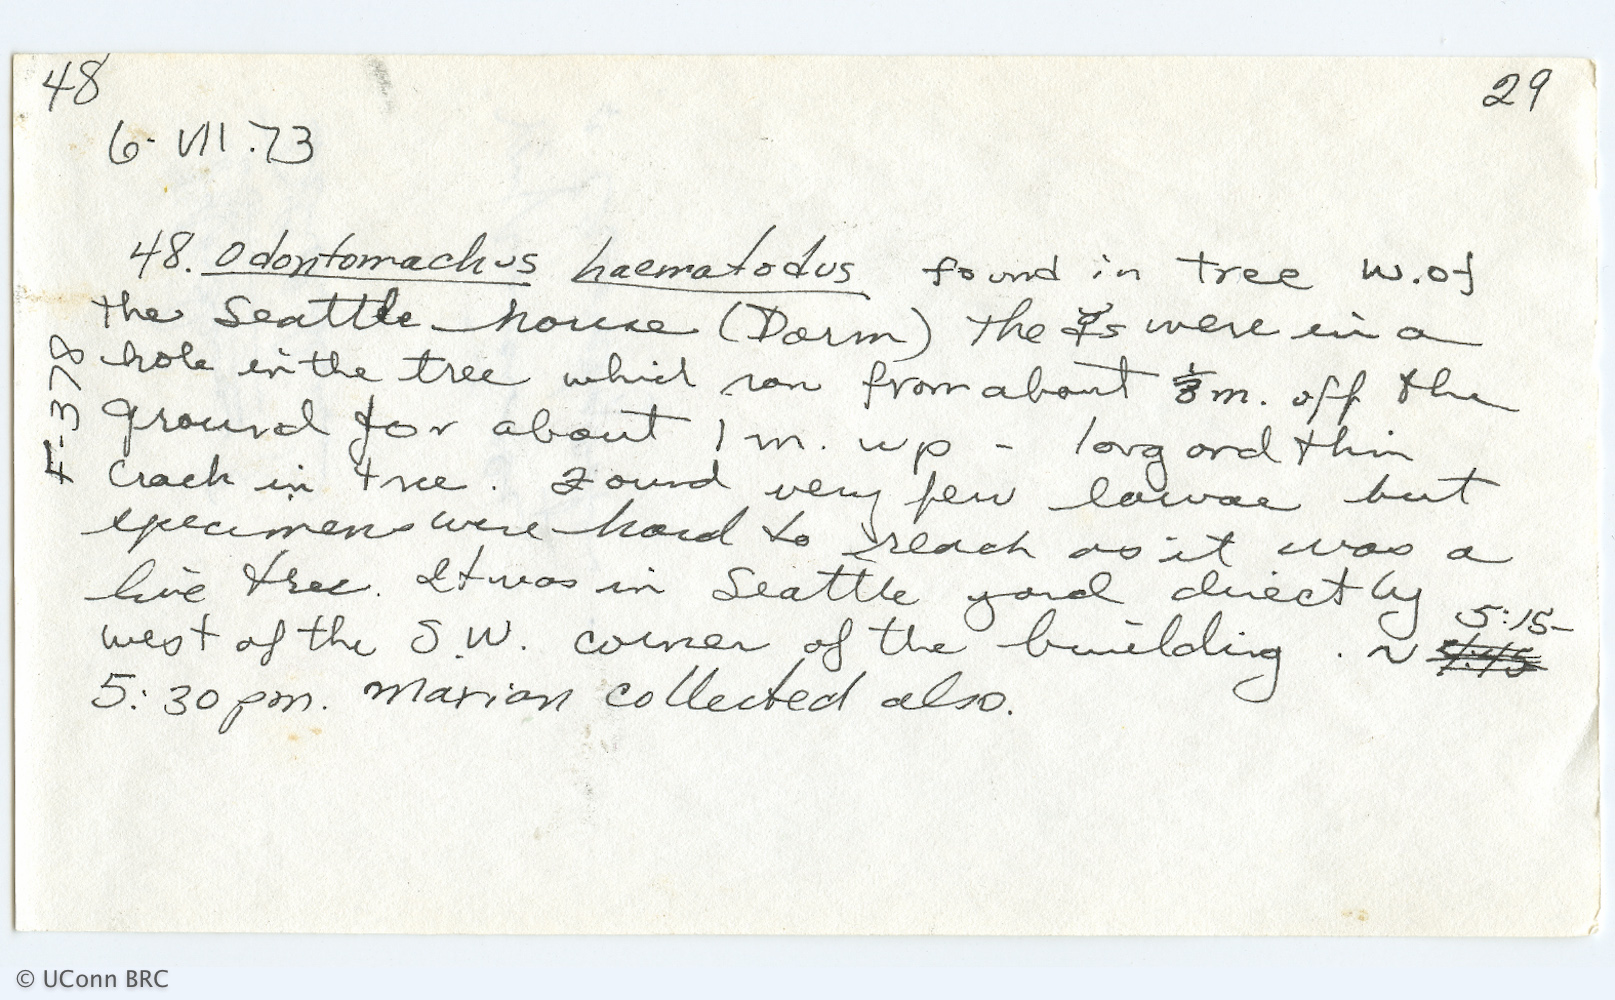 48
29
6-VII.73
48. Odontomachus haematodus found in tree w. of
the Seattle house (Dorm) the ☿s were in a
hole in the tree which ran from about m. off the
ground for about 1 m. up - long and thin
crack in tree. Found very few larvae but
specimens were hard to reach as it was a
live tree. It was in Seattle yard directly
west of the S.W. corner of the building. ~ 5:15-
5:30 pm. Marian collected also.
F-378
© UConn BRC